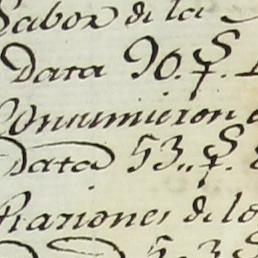 Sabor de la
Data 90. $.
Consumieron
Data 53.. $.
Raziones de lo